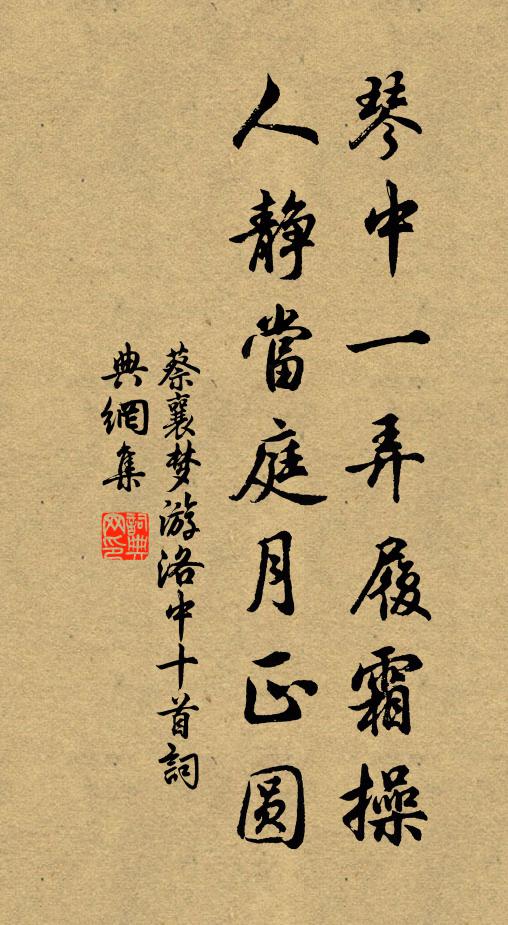 琴中一弄履霜操
人静當庭月正圆
蔡襄梦游洛中十首詞
典網集
詞典
网印